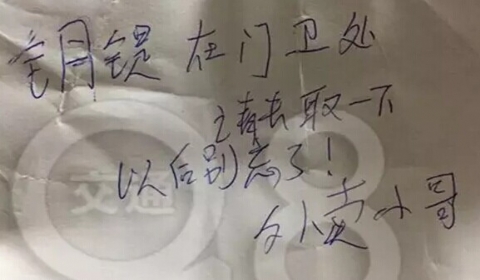 钥 在门卫处
请去取一下
以后别忘了!
外卖小哥
交通
8